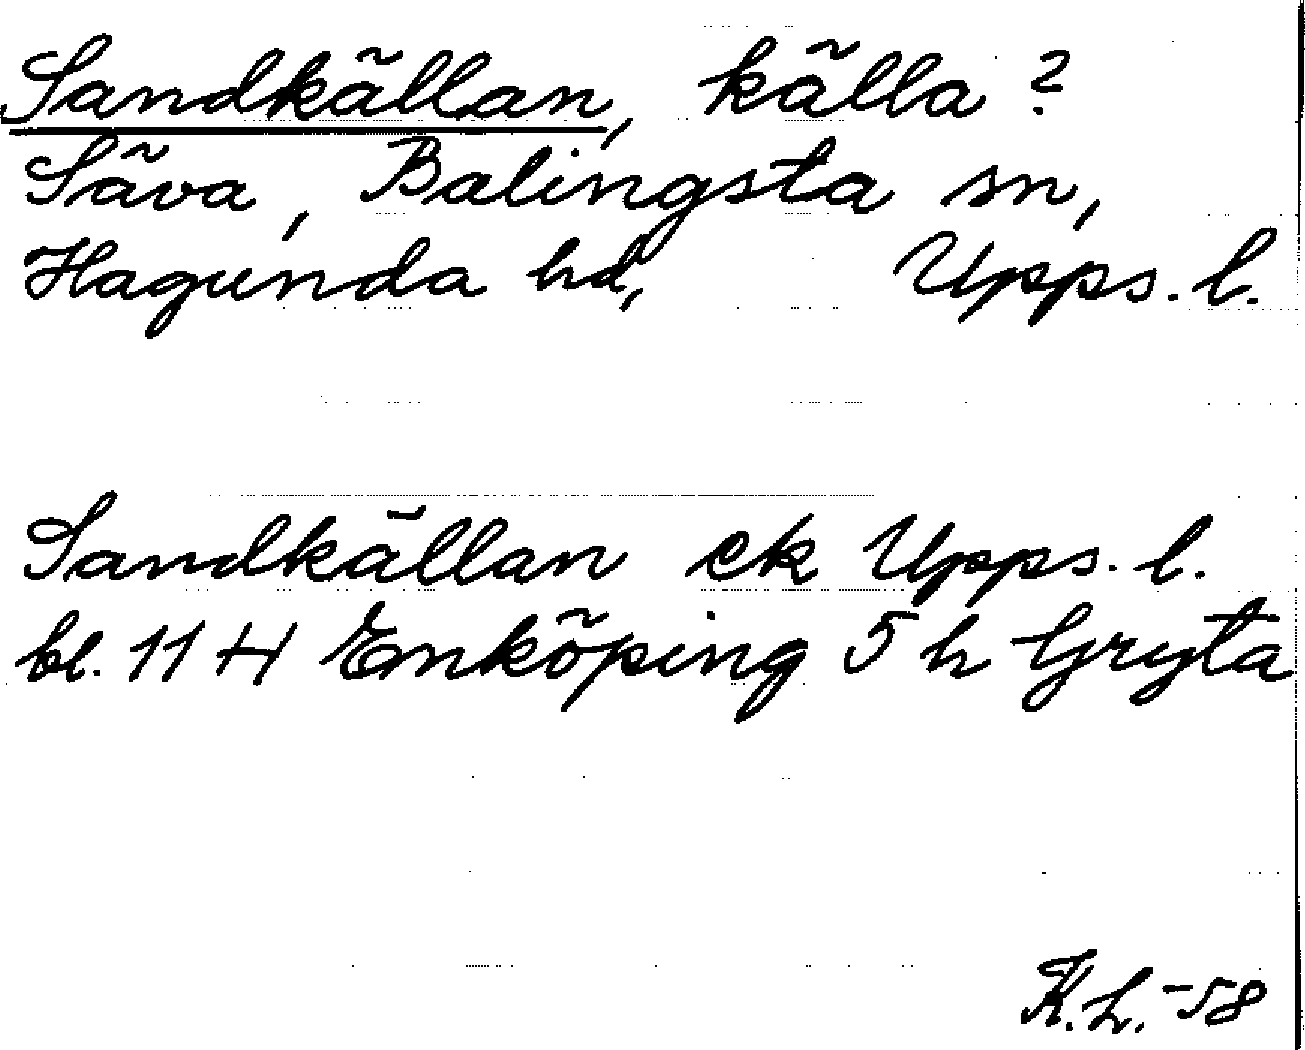 Sandkällan, källa?
Säva, Balingsta sn,
Hagunda hd, Upps. l.
Sandkällan ek Upps. l.
bl. 11 H Enköping 5 h Gryta
K.L. -58